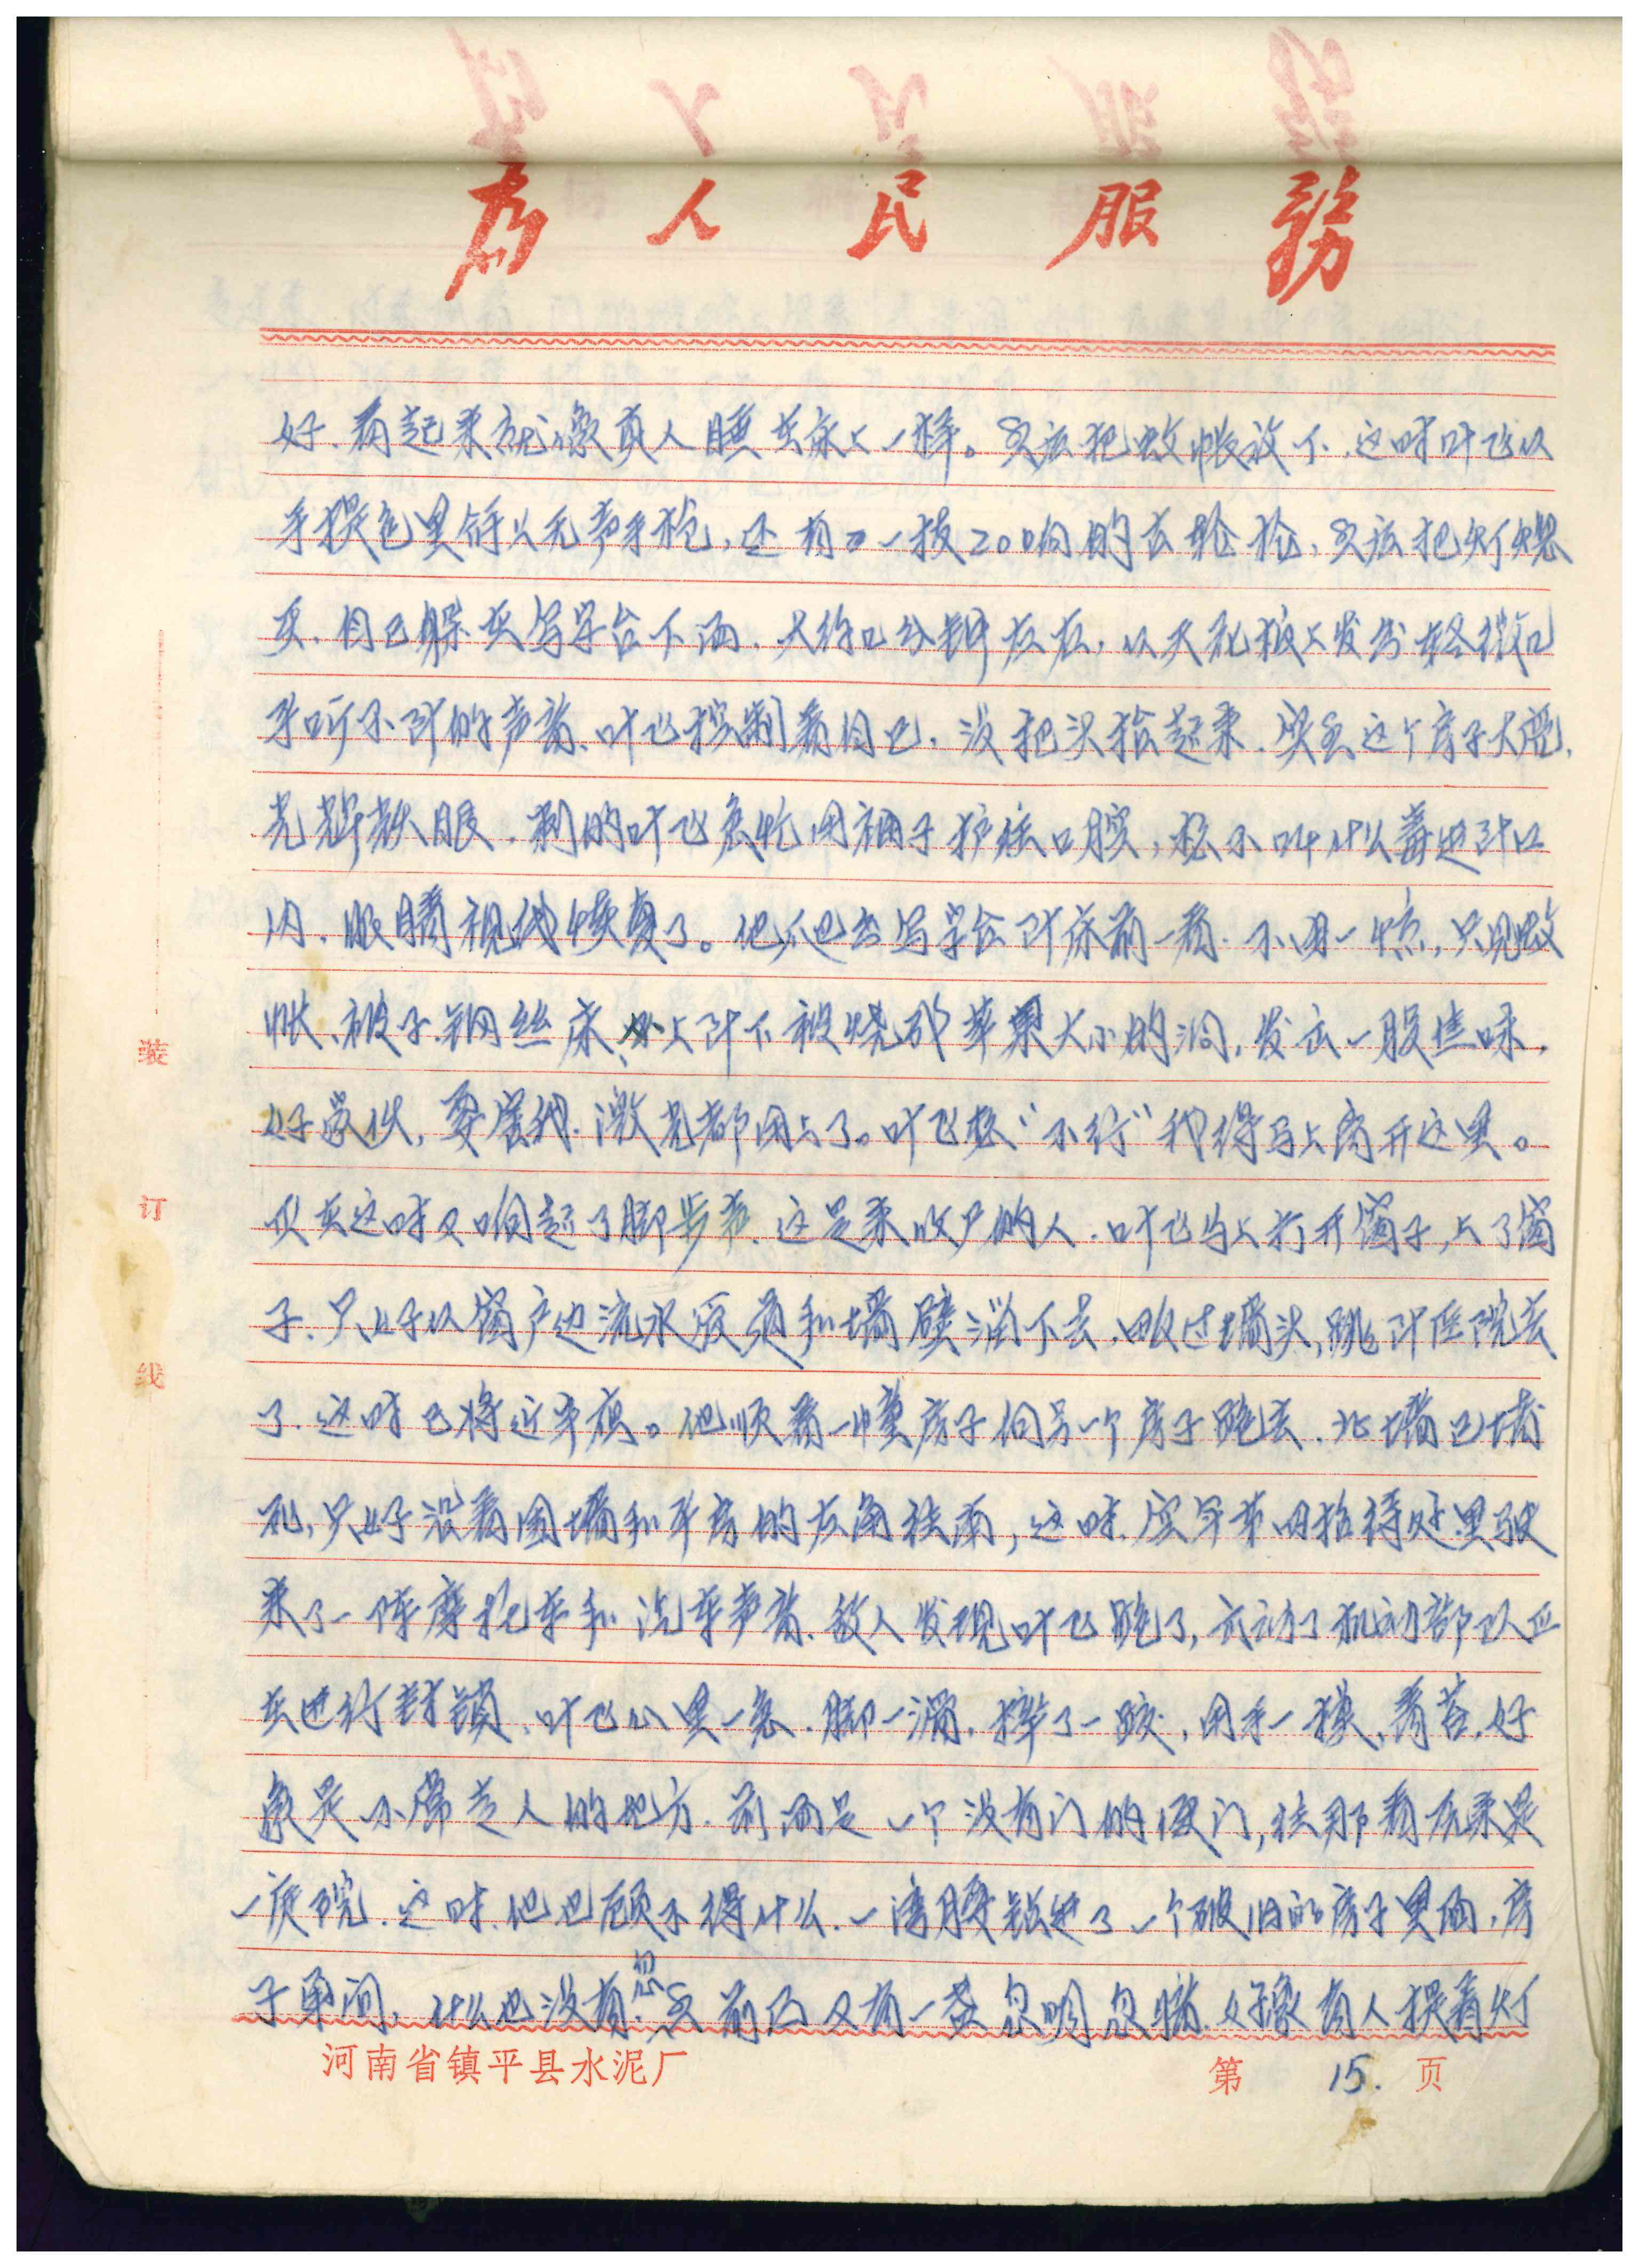 为人民服务
好、看起来就像真人睡在床上一样。又后把蚊帐放下、这时叶飞从
手提包里掏出无声手枪、还有一枝20响的左轮枪、又后把灯熄
灭、自己躲在写字台下面、大约几分钟左右、从天花板上发出轻微几
乎听不到的声音、叶飞控制着自己、没把头抬起来、突然这个房子大亮、
光辉耀眼、刺的叶飞急忙用袖子护住口腔、想不叫什么毒进到口
内、眼睛视线恢复了。他爬出写字台到床前一看、不由一惊、只见蚊
帐、被子、钢丝床、从上到下被烧成苹果大小的洞、发出一股焦味、
好家伙、要害我、激光都用上了。叶飞想“不行”我得马上离开这里。
但在这时又响起了脚步声、这是来收尸的人、叶飞马上打开窗子、上了窗
子、只好从窗户边流水管道和墙壁溜下去、日夜过墙头、跳到后院去
了、这时已将近半夜。他顺着一幢房子向另一个房子跑去、北墙已堵
死、只好沿着围墙和平房的左角往南、这时、空军第四招待处里驶
来了一阵摩托车和汽车声音、敌人发现叶飞跑了、式动了机动部队正
在进行封锁、叶飞心里一急、脚一滑、摔了一跤、用手一摸、青苔、好
像是不常走人的地方、前面是一个没有门的便门、往那看原来是
一废院、这时、他也顾不得什么、一弯腰钻进了一个破旧的房子里面、房
子单间、什么也没有、忽然前面又有一盏忽明忽暗、好像有人提着灯
装
订
线
河南省镇平县水泥厂
第 15. 页